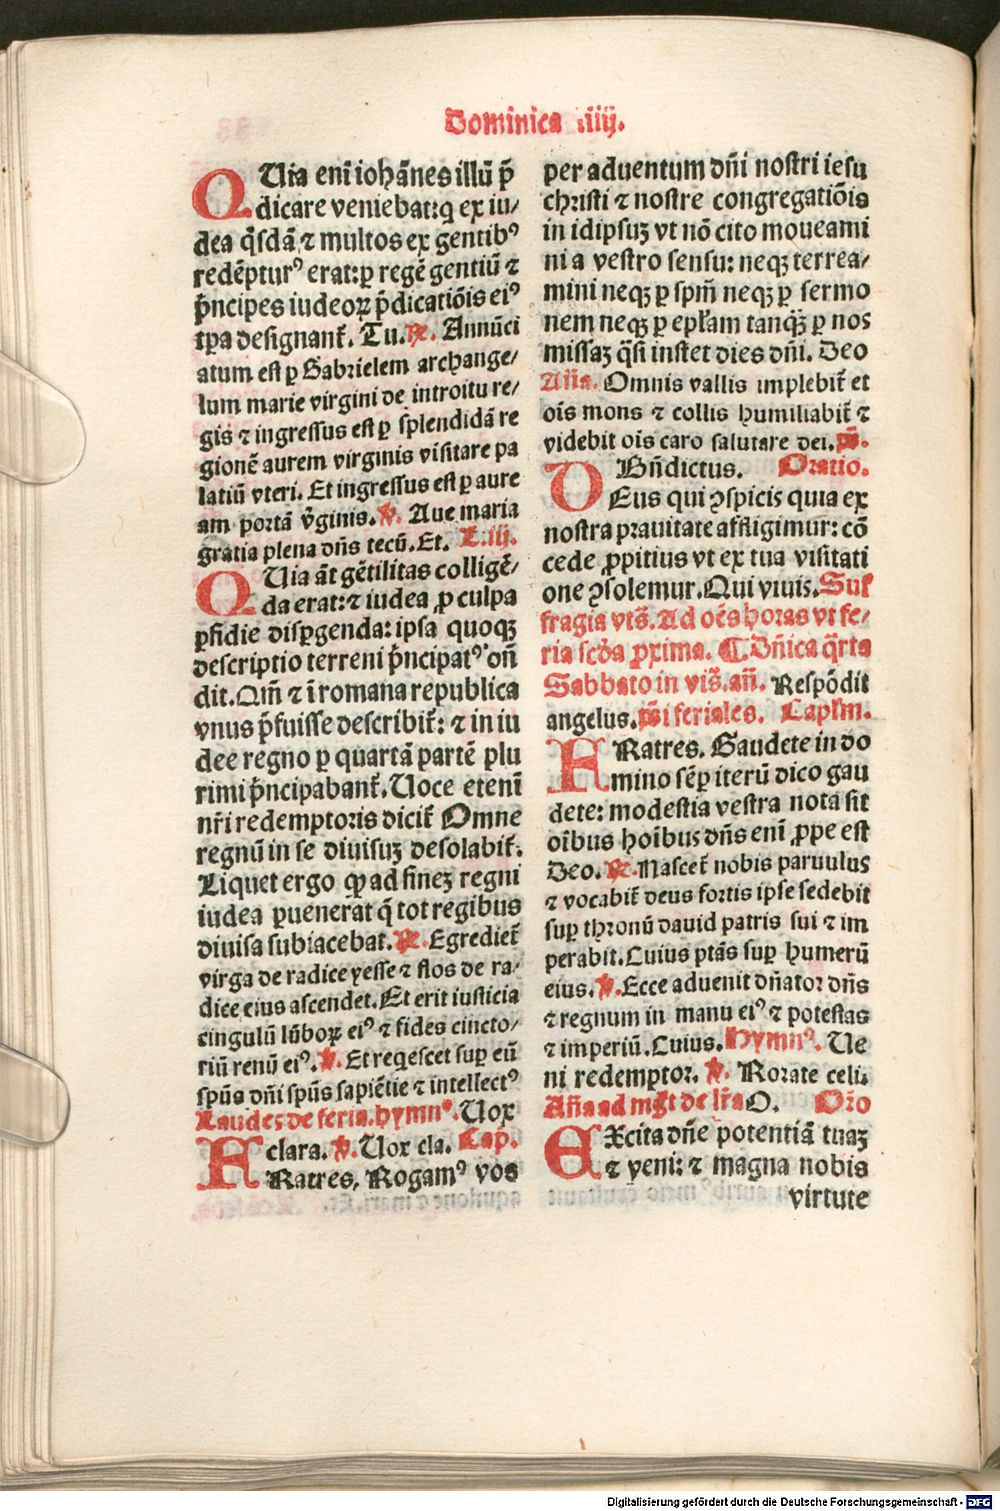 Dominica .iiij.
QUia enī iohānes illū p̄
dicare veniebat: q ex iu/
dea q̄sdā ⁊ multos ex gentibꝰ
redēpturꝰ erat: ꝑ regē gentiū ⁊
p̄ncipes iudeoꝝ p̄dicatiōis eiꝰ
tꝑa designant̄. Tu. ℟. Annūci
atum est ꝑ Gabrielem archange/
lum marie virgini de introitu re/
gis ⁊ ingressus est ꝑ splendidā re
gionē aurem virginis visitare pa
latiū vteri. Et ingressus est ꝑ aure
am portā v̄ginis. ℣. Aue maria
gratia plena dn̄s tecū. Et. L. iij.
QUia āt gētilitas colligē/
da erat: ⁊ iudea ꝓ culpa
ꝑfidie disꝑgenda: ipsa quoqꝫ
descriptio terreni p̄ncipatꝰ on̄
dit. Qm̄ ⁊ ī romana republica
vnus p̄fuisse describit̄: ⁊ in iu
dee regno ꝑ quartā partē plu
rimi p̄ncipabant̄. Uoce etenī
nr̄i redemptoris dicit̄ Omne
regnū in se diuisuꝫ desolabit̄.
Liquet ergo ꝙ ad fineꝫ regni
iudea ꝑuenerat q̄ tot regibus
diuisa subiacebat. ℟. Egrediet̄
virga de radice yesse ⁊ flos de ra/
dice eius ascendet. Et erit iusticia
cingulū lūboꝝ eiꝰ ⁊ fides cincto/
riū renū eiꝰ. ℣. Et reqescet suꝑ eū
spūs dn̄i spūs sapiētie ⁊ intellectꝰ
Laudes de feria. hymnꝰ. Uox
clara. ℣. Uox cla. Cap.
FRatres. Rogamꝰ vos
per aduentum dn̄i nostri iesu
christi ⁊ nostre congregatiōis
in idipsuꝫ vt nō cito moueami
ni a vestro sensu: neqꝫ terrea/
mini neqꝫ ꝑ spm̄ neqꝫ ꝑ sermo
nem neqꝫ ꝑ epl̄am tanqꝫ̄ ꝑ nos
missaꝫ q̄si instet dies dn̄i. Deo
Añia. Omnis vallis implebit̄ et
ois̄ mons ⁊ collis humiliabit̄ ⁊
videbit ois̄ caro salutare dei. ps̄.
Bn̄dictus. Oratio.
DEus qui ꝯspicis quia ex
nostra prauitate affligimur: cō
cede ꝓpitius vt ex tua visitati
one ꝯsolemur. Qui viuis. Suf
fragia vts̄. Ad oēs horas vt fe/
ria scd̄a ꝓxima. ¶ Dn̄ica q̄rta
Sabbato in vis̄. an̄. Respōdit
angelus. ps̄i feriales. Capl̄m.
FRatres. Gaudete in do
mino sēꝑ iterū dico gau
dete: modestia vestra nota sit
oībus hoībus dn̄s enī ꝓpe est
Deo. ℟. Nascet̄ nobis paruulus
⁊ vocabit̄ deus fortis ipse sedebit
suꝑ thronū dauid patris sui ⁊ im
perabit. Cuius ptās suꝑ humerū
eius. ℣. Ecce aduenit dn̄ator dn̄s
⁊ regnum in manu eiꝰ ⁊ potestas
⁊ imperiū. Cuius. Hymnꝰ. Ue
ni redemptor. ℣. Rorate celi.
Añia ad mḡt de lr̄a O. Or̄o
EXcita dn̄e potentiā tuaꝫ
⁊ veni: ⁊ magna nobis
virtute
Digitalisierung gefördert durch die Deutsche Forschungsgemeinschaft - DFG